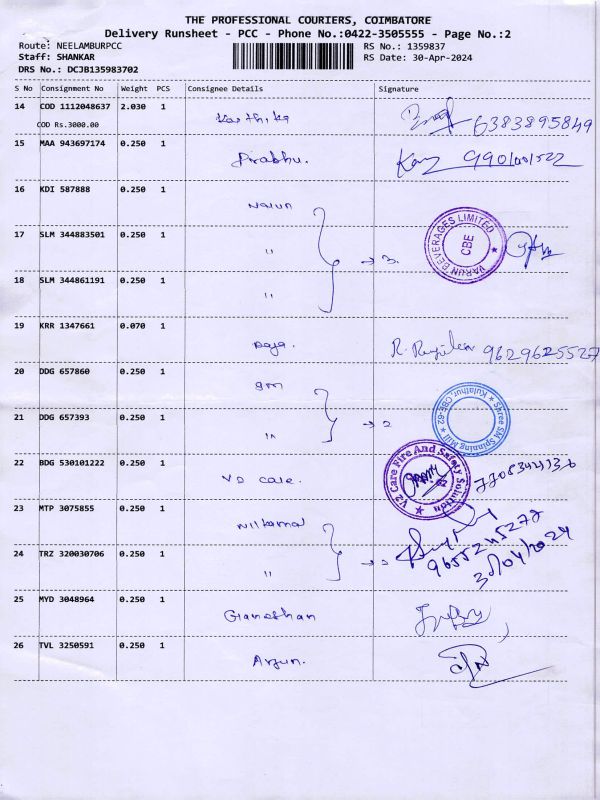 THE PROFESSIONAL COURIERS, COIMBATORE
Delivery Runsheet - PCC - Phone No.:0422-3505555 - Page No.:2
Route: NEELAMBURPCC
Staff: SHANKAR
DRS No.: DCJB135983702
RS No.: 1359837
RS Date: 30-Apr-2024
S No Consignment No Weight PCS Consignee Details Signature
14 COD 1112048637 2.030 1 Karthika 6383895849
COD Rs.3000.00
15 MAA 943697174 0.250 1 Prabhu.
16 KDI 587888 0.250 1 Varun
VARUN BEVERAGES LIMITED
CBE
17 SLM 344883501 0.250 1 " → 3.
18 SLM 344861191 0.250 1 "
19 KRR 1347661 0.070 1 Raja. 9629625527
20 DDG 657860 0.250 1 gm
Shree SM Spinning Mill
Kulathur, CBE-62
21 DDG 657393 0.250 1 → 2
22 BDG 530101222 0.250 1 V2 care.
V2 Care Fire And Safety Solution
23 MTP 3075855 0.250 1 Nilkamal 9655245272
30/04/2024
24 TRZ 320030706 0.250 1 " → 2
25 MYD 3048964 0.250 1 Ganeshan
26 TVL 3250591 0.250 1 Arjun.